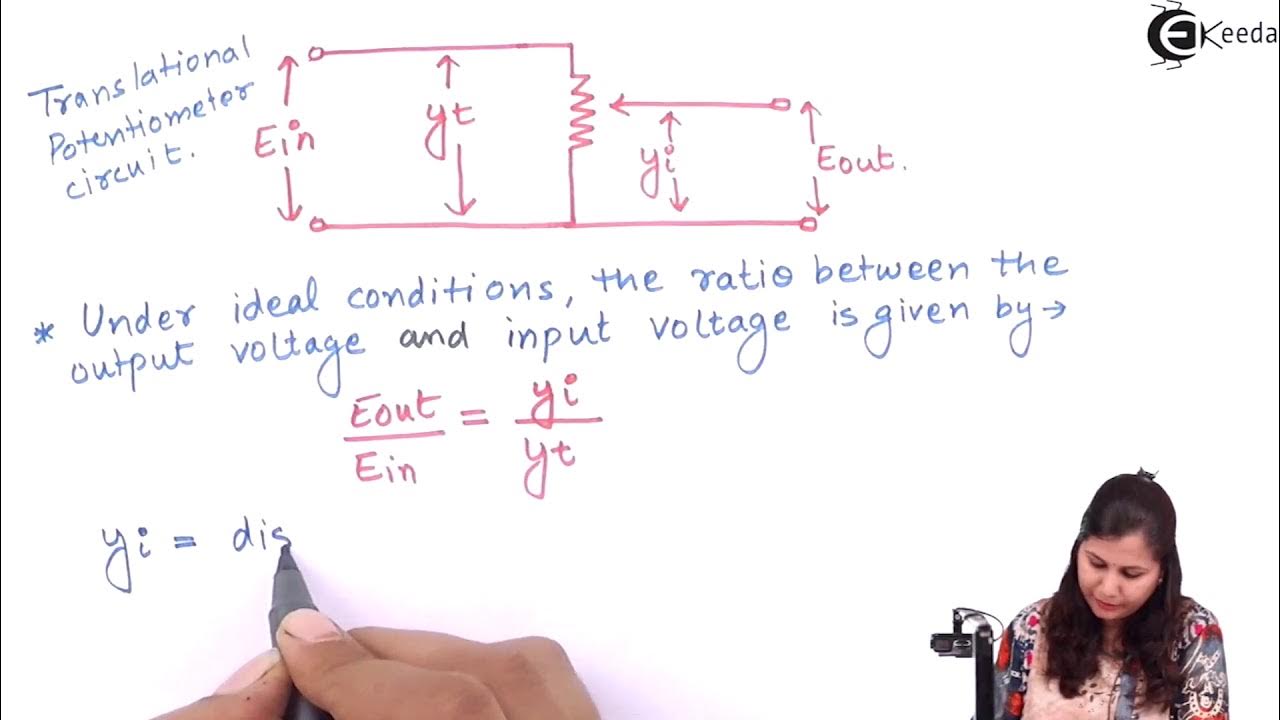 Ekeeda
Translational
Potentiometer
circuit.
Ein
yt
yi
Eout.
* Under ideal conditions, the ratio between the
output voltage and input voltage is given by→
Eout = yi
Ein yt
yi = dis